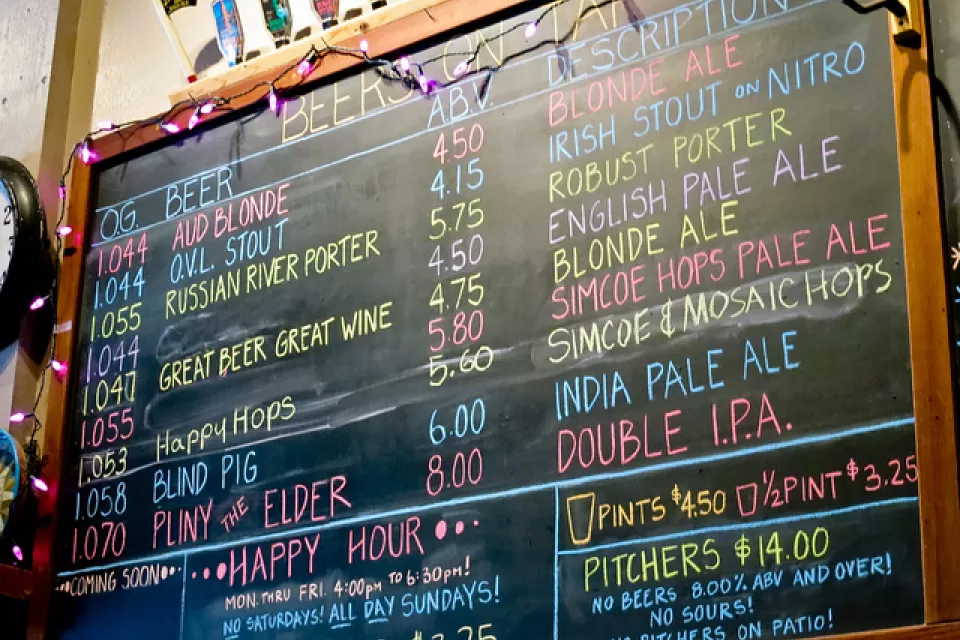 BEERS ON TAP
O.G. BEER A.B.V. DESCRIPTION
1.044 AUD BLONDE 4.50 BLONDE ALE
1.044 O.V.L. STOUT 4.15 IRISH STOUT ON NITRO
1.055 RUSSIAN RIVER PORTER 5.75 ROBUST PORTER
1.044 4.50 ENGLISH PALE ALE
1.047 GREAT BEER GREAT WINE 4.75 BLONDE ALE
1.055 5.80 SIMCOE HOPS PALE ALE
1.053 Happy Hops 5.60 SIMCOE & MOSAIC HOPS
1.058 BLIND PIG 6.00 INDIA PALE ALE
1.070 PLINY THE ELDER 8.00 DOUBLE I.P.A.
COMING SOON
HAPPY HOUR
MON. THRU FRI. 4:00pm TO 6:30pm!
NO SATURDAYS! ALL DAY SUNDAYS!
PINTS $4.50 ½ PINT $3.25
PITCHERS $14.00
NO BEERS 8.00% ABV AND OVER!
NO SOURS!
NO PITCHERS ON PATIO!